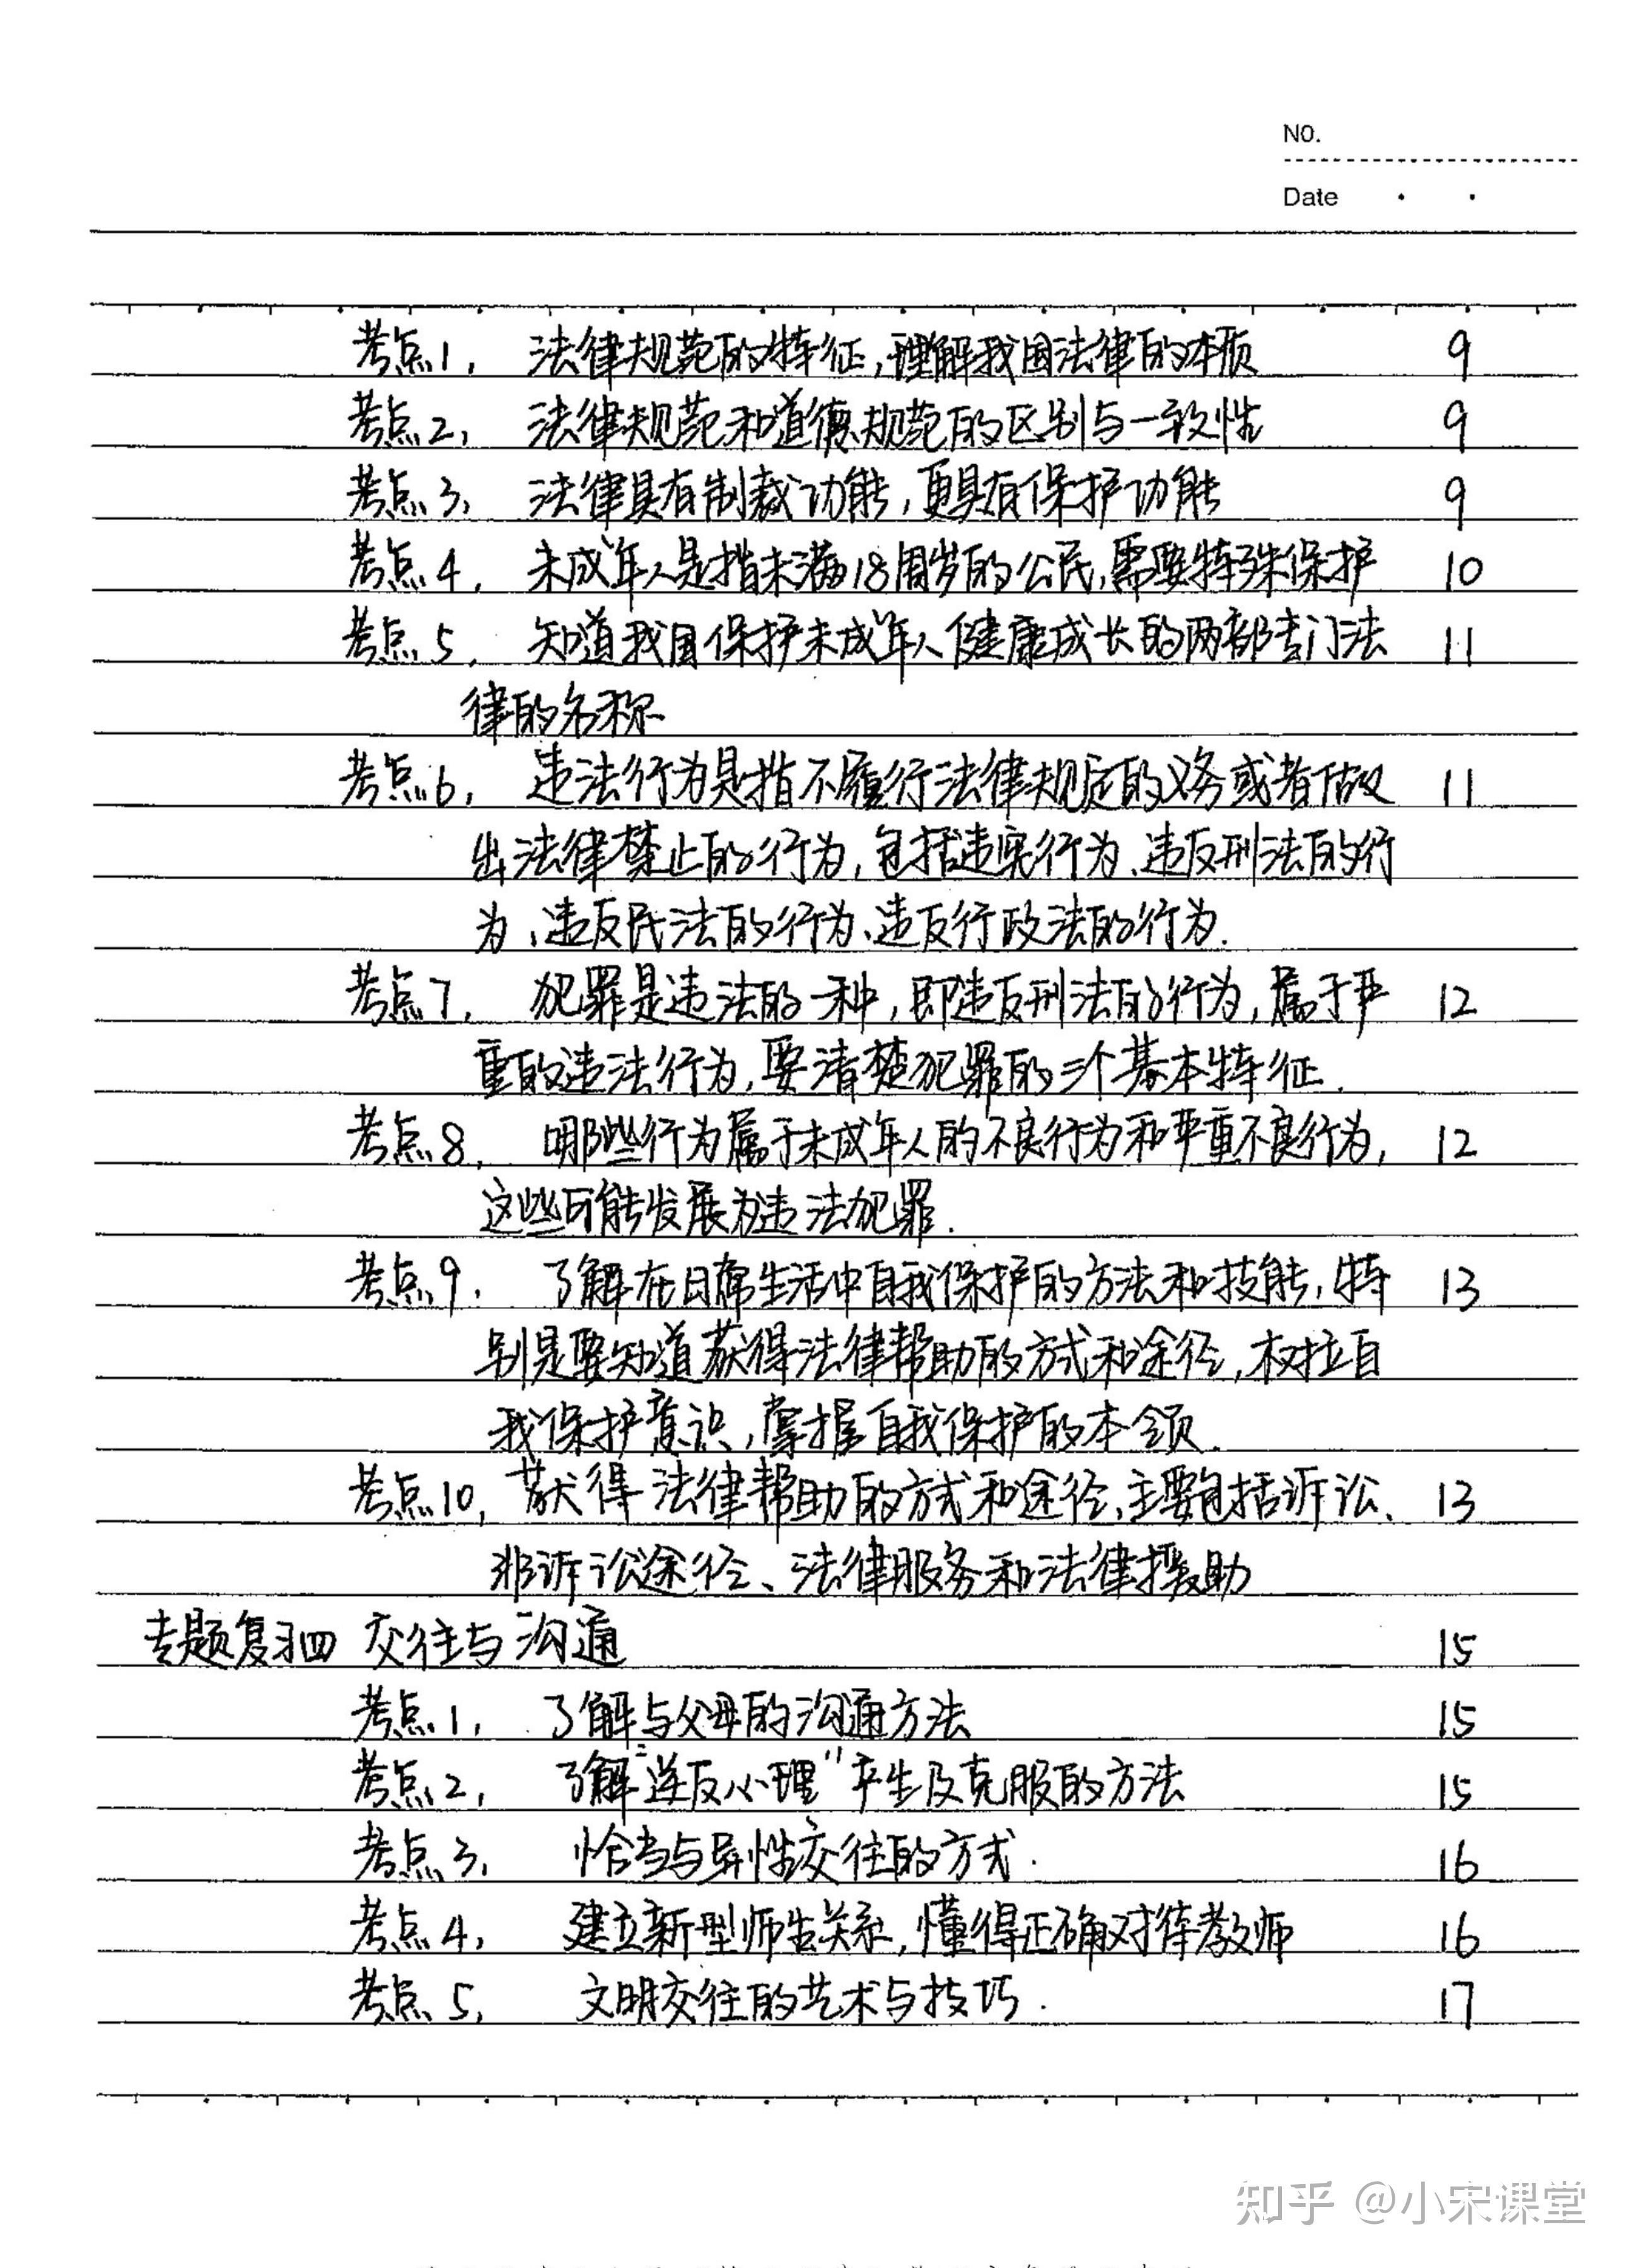 NO.
Date
考点1. 法律规范的特征,理解我国法律的本质 9
考点2. 法律规范和道德规范的区别与一致性 9
考点3. 法律具有制裁功能,更具有保护功能 9
考点4. 未成年人是指未满18周岁的公民,需要特殊保护 10
考点5. 知道我国保护未成年人健康成长的两部专门法 11
律的名称
考点6. 违法行为是指不履行法律规定的义务或者做 11
出法律禁止的行为,包括违宪行为、违反刑法的行
为、违反民法的行为、违反行政法的行为.
考点7. 犯罪是违法的一种,即违反刑法的行为,属于严 12
重的违法行为,要清楚犯罪的三个基本特征.
考点8. 哪些行为属于未成年人的不良行为和严重不良行为, 12
这些可能发展为违法犯罪.
考点9. 了解在日常生活中自我保护的方法和技能,特 13
别是要知道获得法律帮助的方式和途径,树立自
我保护意识,掌握自我保护的本领.
考点10. 获得法律帮助的方式和途径,主要包括诉讼、 13
非诉讼途径、法律服务和法律援助
专题复习四 交往与沟通 15
考点1. 了解与父母的沟通方法 15
考点2. 了解"逆反心理"产生及克服的方法 15
考点3. 恰当与异性交往的方式. 16
考点4. 建立新型师生关系,懂得正确对待教师 16
考点5. 文明交往的艺术与技巧. 17
知乎 @小宋课堂